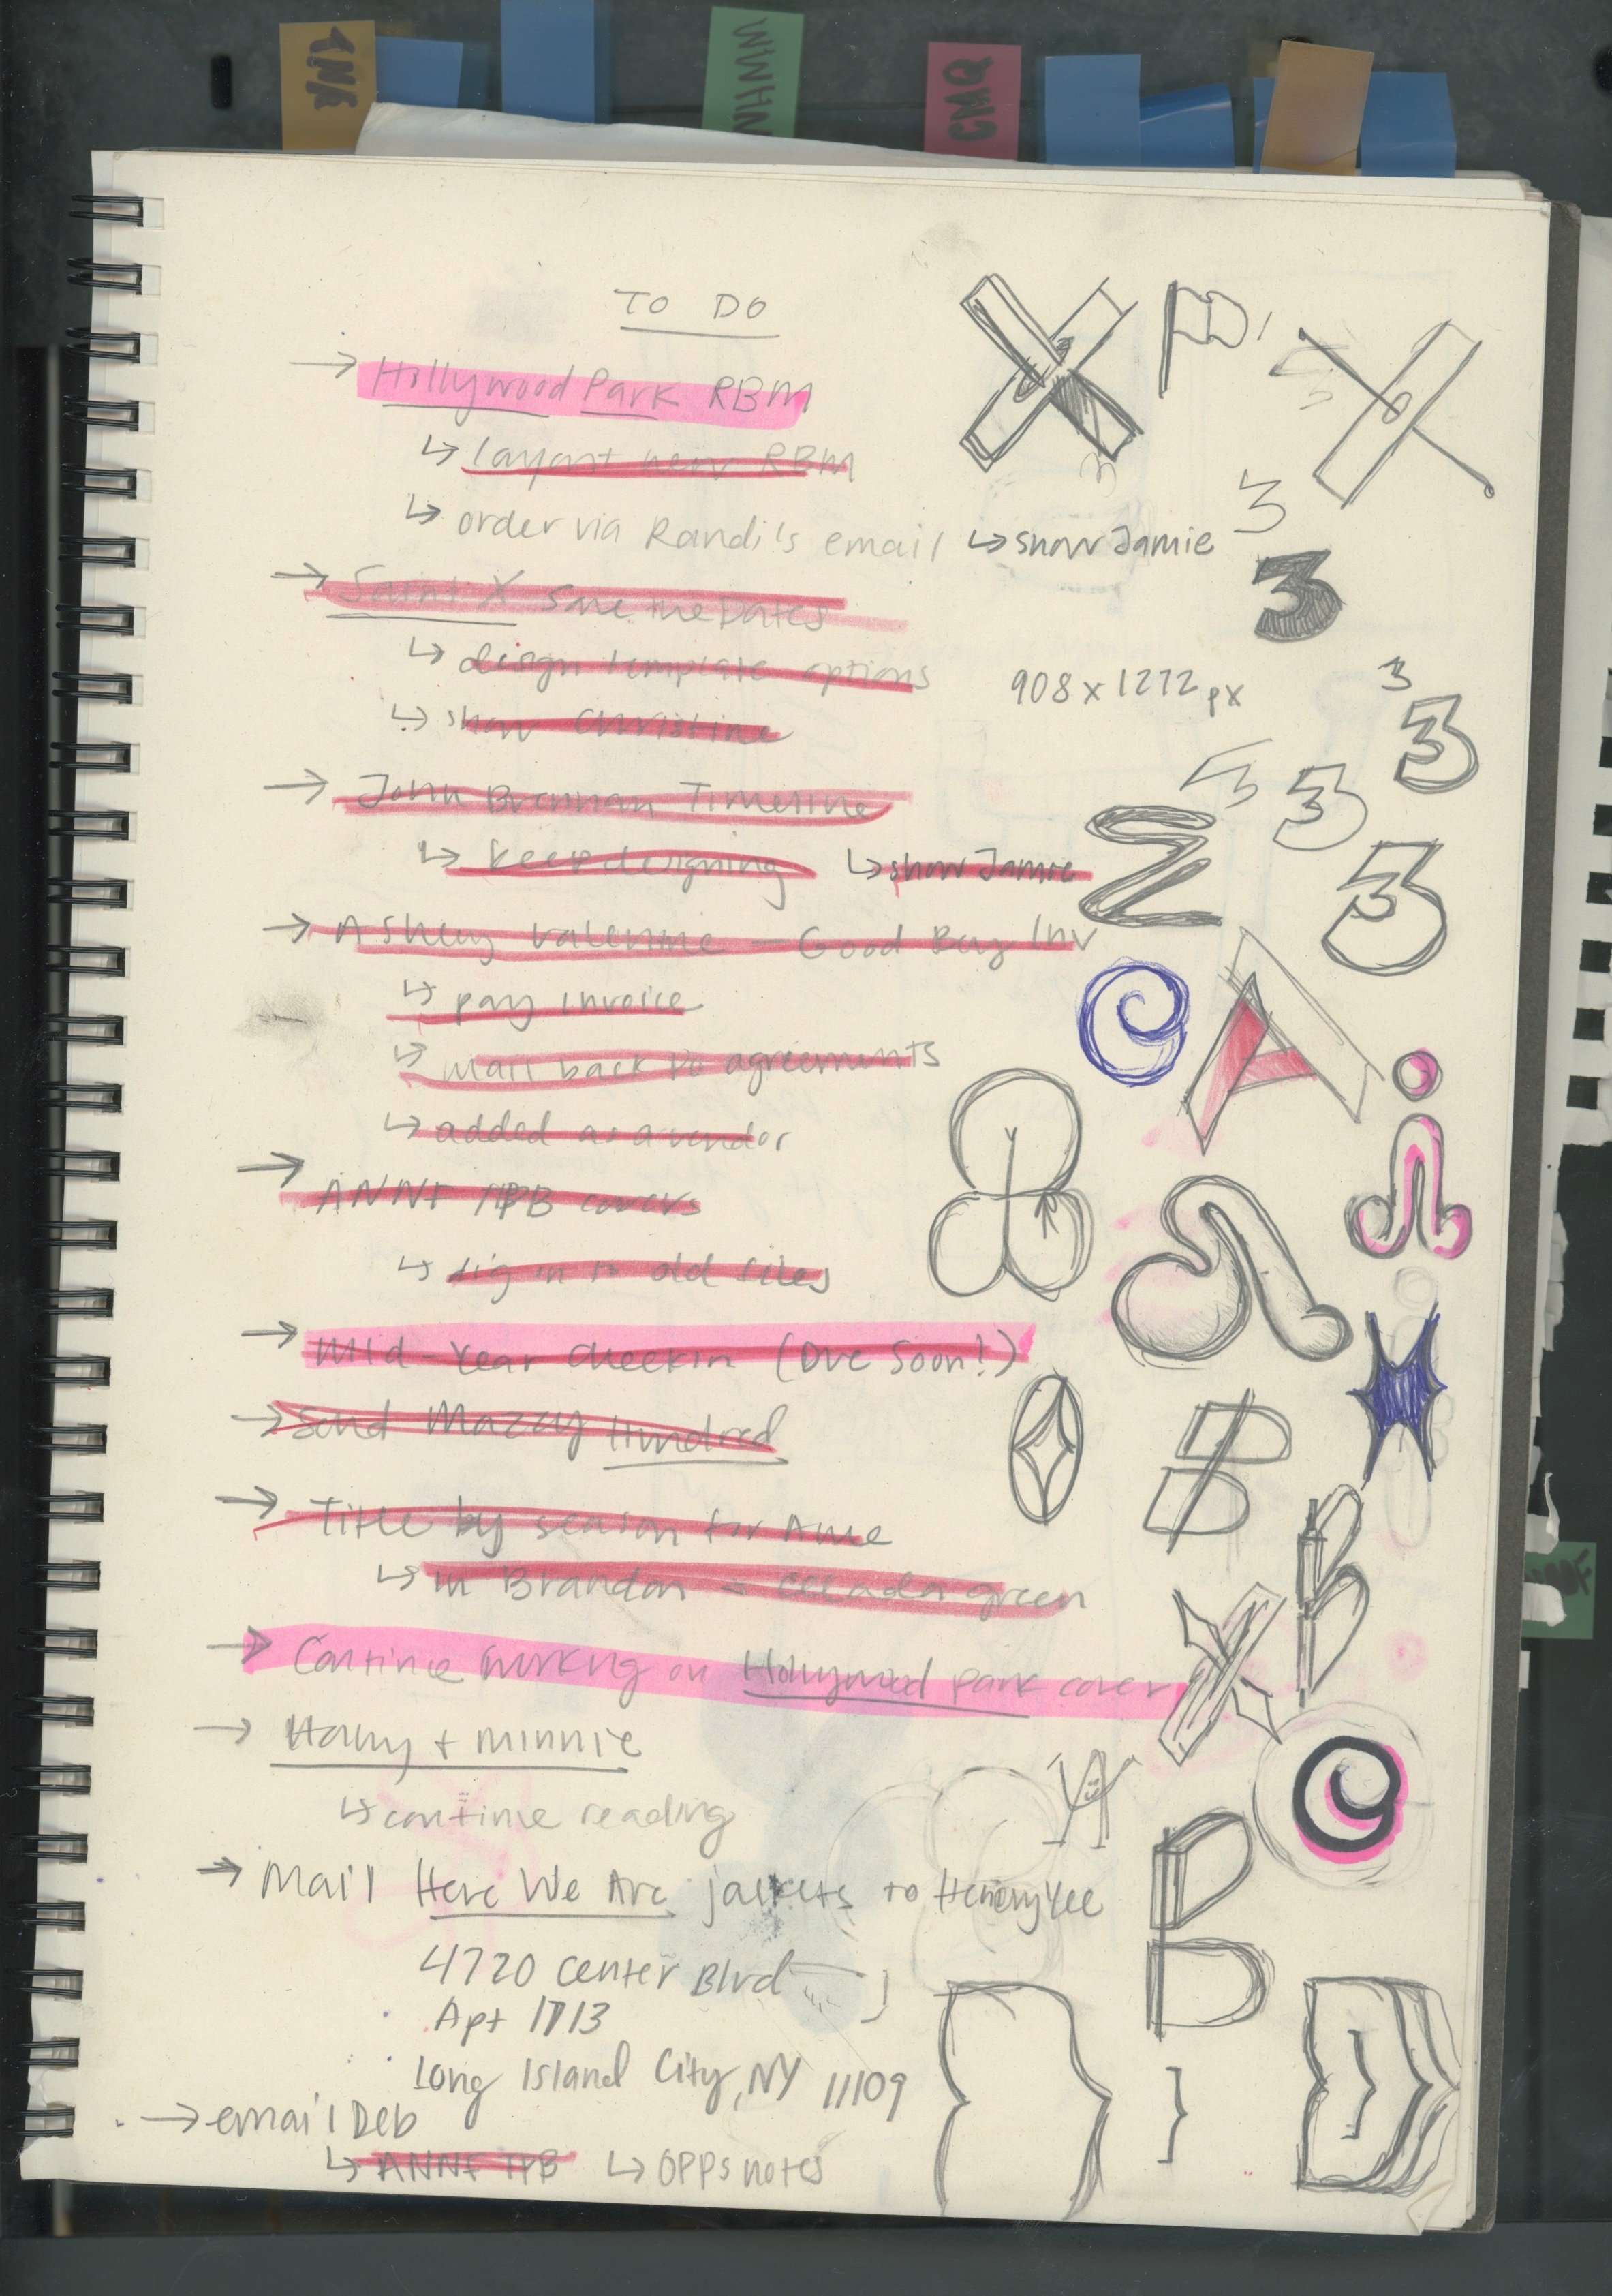 WWHW
CMQ
TO DO
→ Hollywood Park RBM
↳ layout new RBM
↳ order via Randi's email ↳ show Jamie
→ Saint X Save the Dates
↳ design template options
908 x 1272 px
↳ show Christine
→ John Brennan Timeline
↳ keep designing ↳ show Jamie
→ Ashley Valentine — Good Boy Inv
↳ pay invoice
↳ mail back agreements
↳ added as a vendor
→ ANNF TPB covers
↳ dig in to old files
→ Mid-Year Checkin (Due Soon!)
→ Send Mazey Hundred
→ Title by season for
↳ in Brandon green
→ Continue working on Hollywood Park cover
→ Harry + Minnie
↳ continue reading
→ Mail Here We Are jackets to Henry Yee
4720 Center Blvd
Apt 1713
Long Island City, NY 11109
→ email Deb
↳ ANNF TPB ↳ OPPs notes
X
3
3
3
3
3
3
3
A
B
B
X
B
}